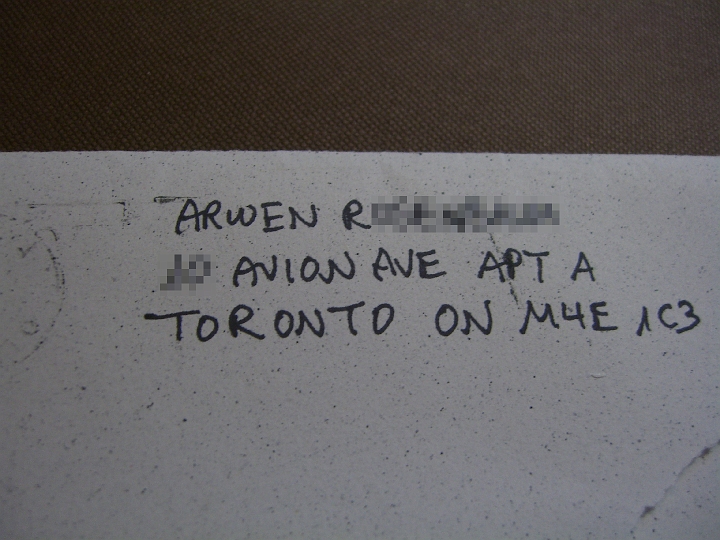 ARWEN R
AVION AVE APT A
TORONTO ON M4E 1C3